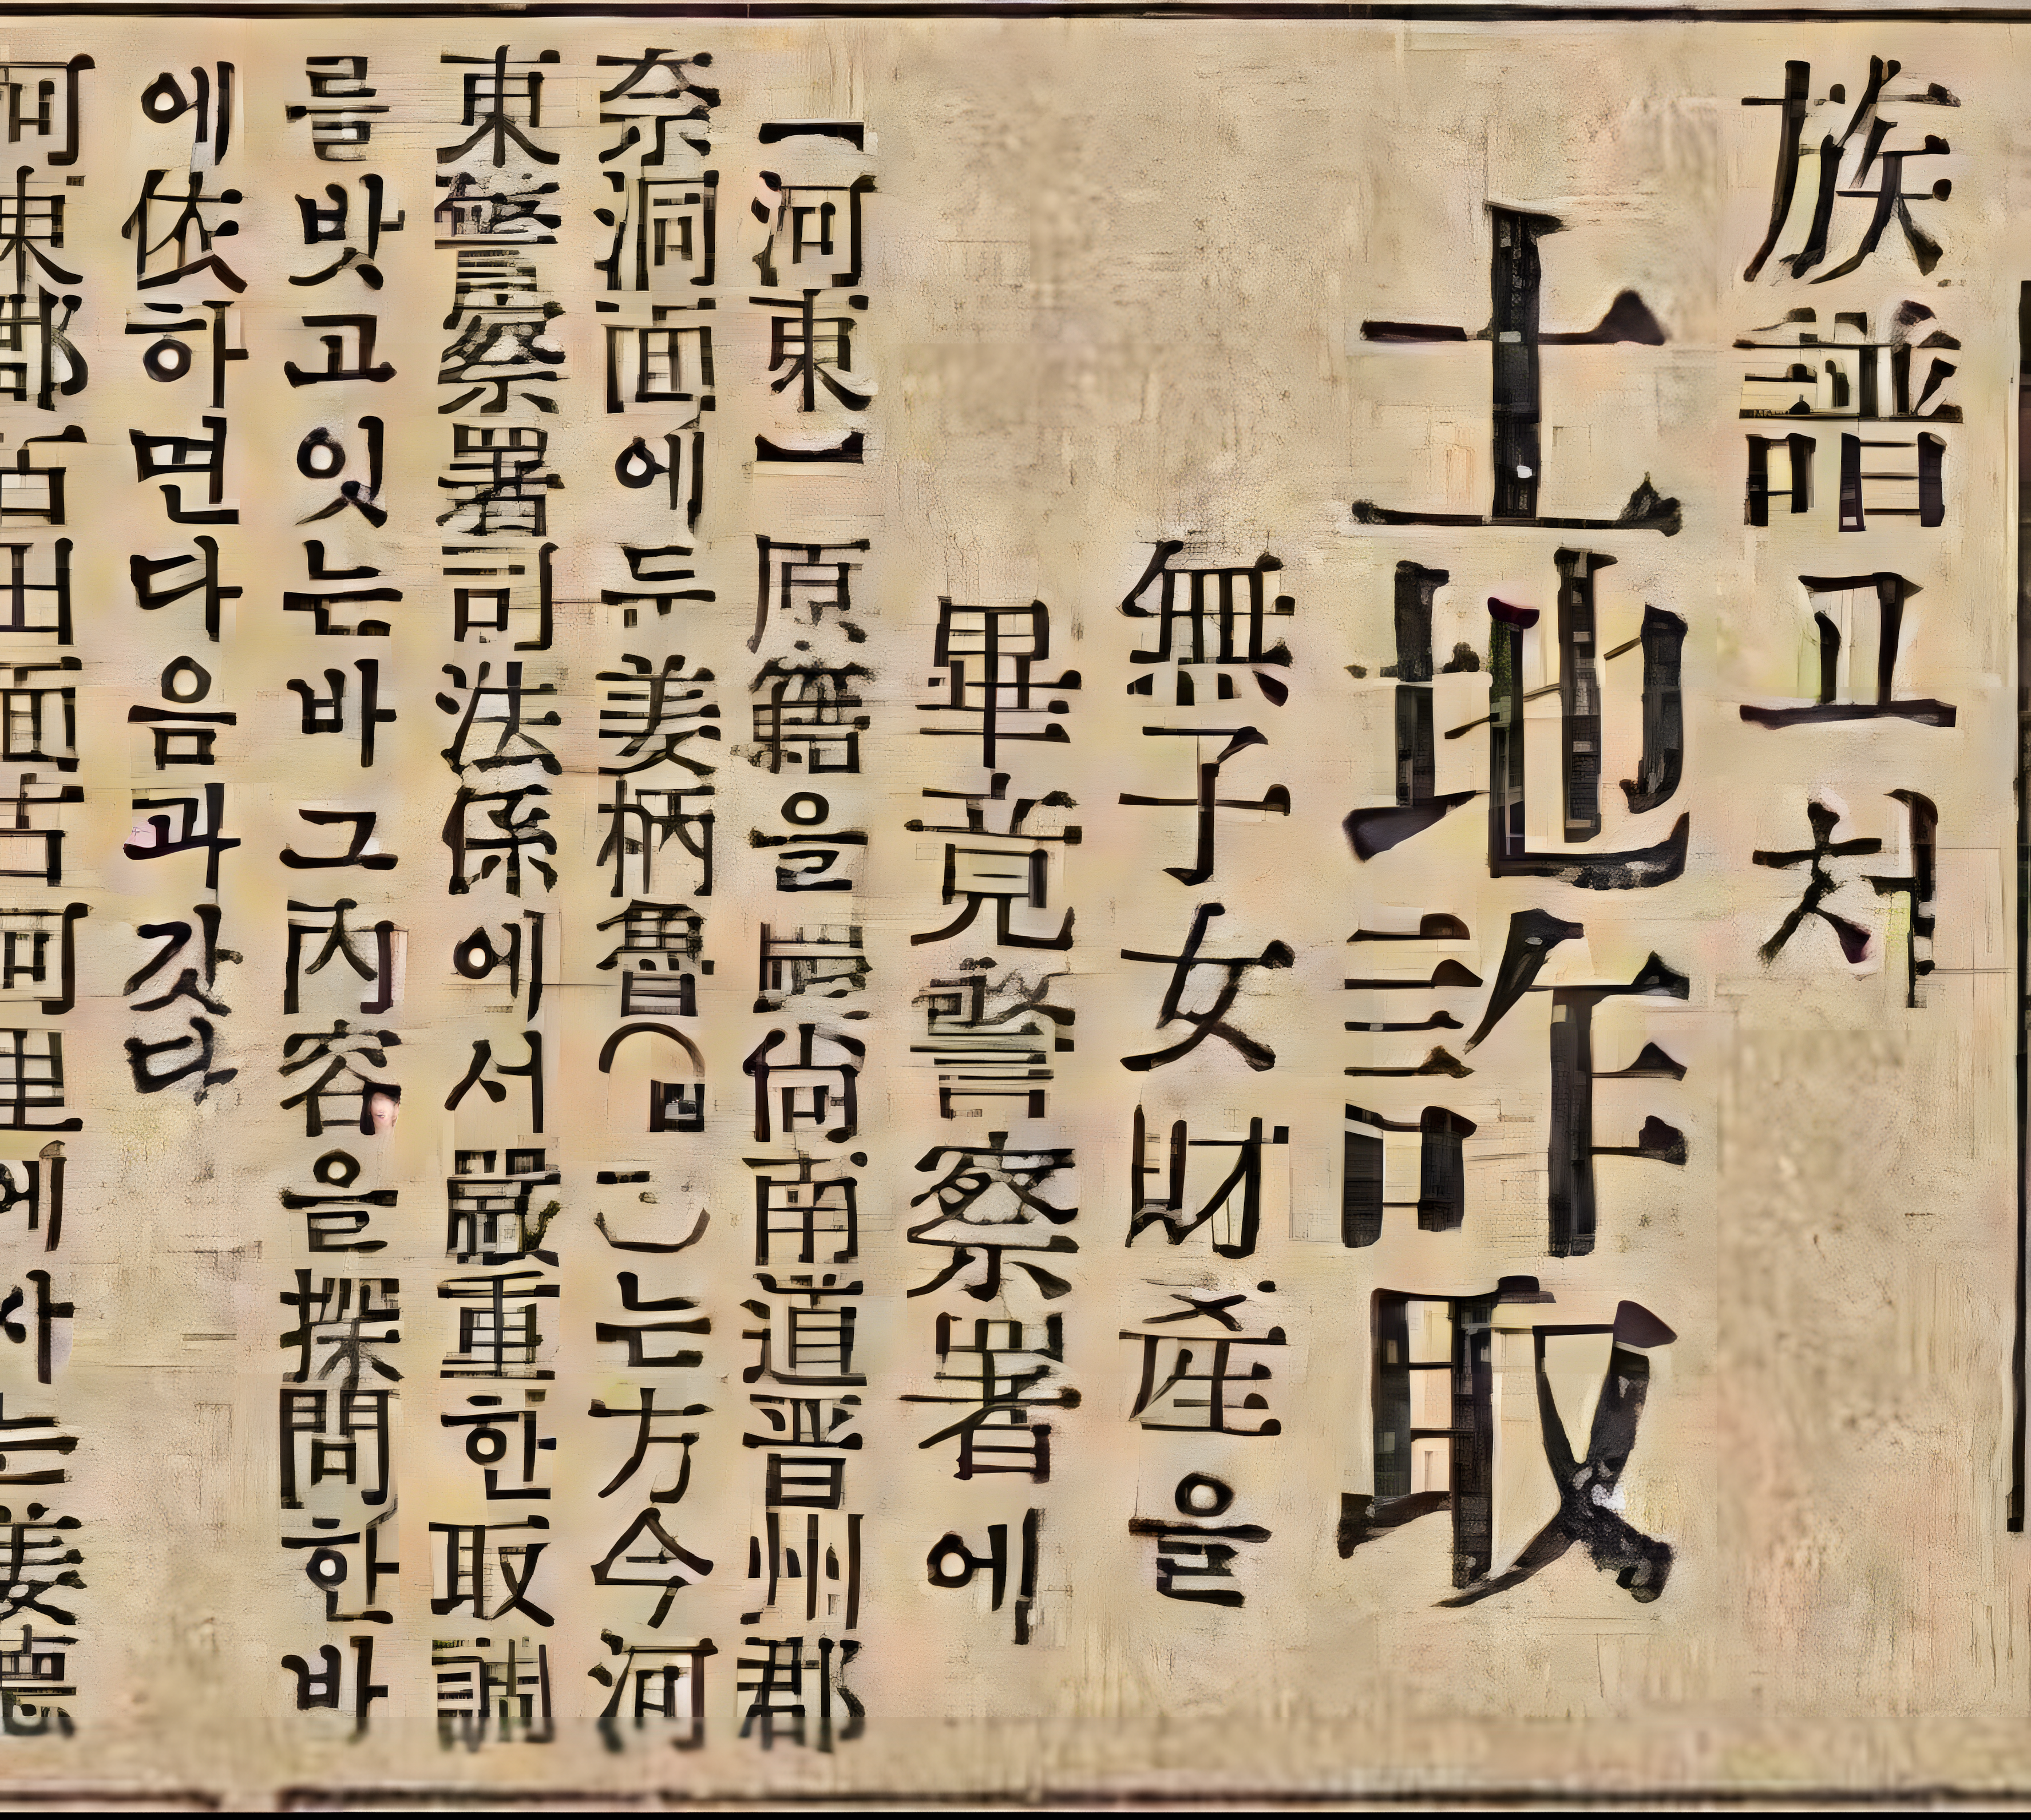 族譜고처
土地詐取
無子女財産을
畢竟警察署에
【河東】原籍을慶尙南道晋州郡
奈洞面에두姜柄魯( )는方今河
東警察署司法係에서嚴重한取調
를밧고잇는바그內容을探問한바
에依하면다음과갓다
河東郡古田面古河里에사는姜德